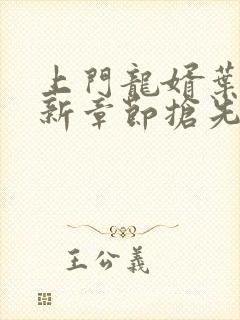 上門龍婿葉
新章節搶先
王公義